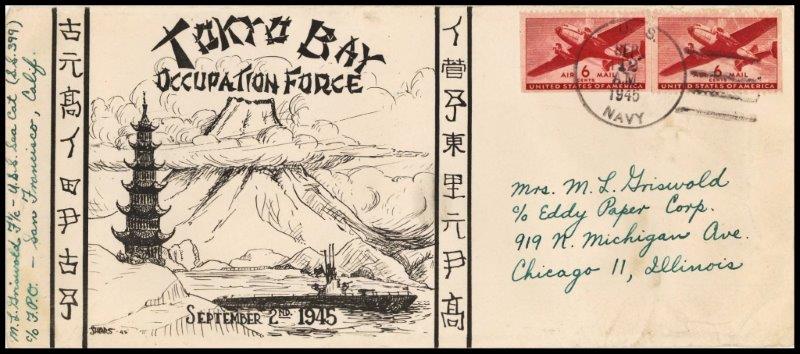 M. L. Griswold F1/c - U.S.S. Sea Cat (S.S. 399)
c/o F.P.O. - San Francisco, Calif.
古元髙イ田尹古孑
TOKYO BAY
OCCUPATION FORCE
SEPTEMBER 2ND. 1945
イ菅孑東里元尹髙
AIR 6 MAIL
CENTS
UNITED STATES OF AMERICA
AIR 6 MAIL
CENTS
UNITED STATES OF AMERICA
U. S.
SEP
12
AM
1945
NAVY
Mrs. M. L. Griswold
c/o Eddy Paper Corp.
919 N. Michigan Ave.
Chicago 11, Illinois